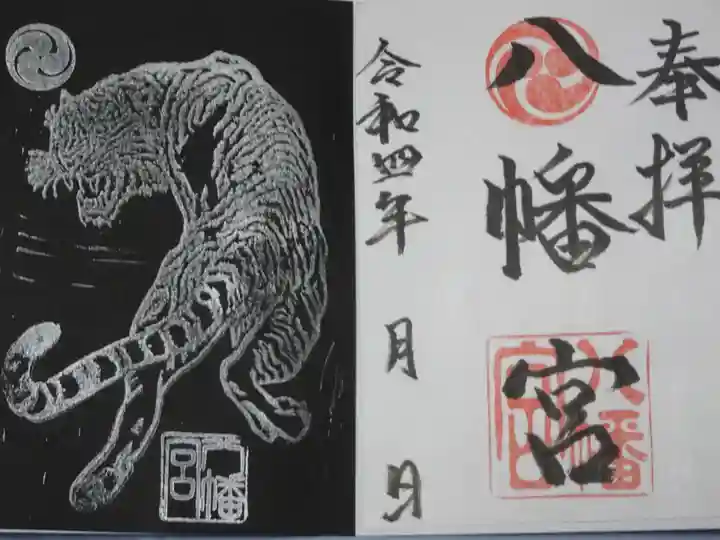 奉拝
八幡宮
八幡宮
令和四年 月 日
八幡宮